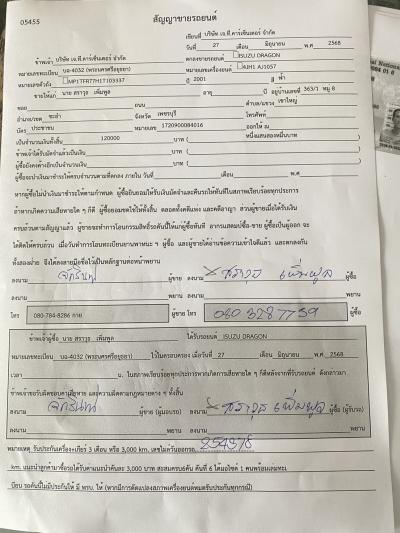 05455
สัญญาขายรถยนต์
เขียนที่ บริษัท เจ.ที.คาร์เซ็นเตอร์ จำกัด
วันที่ 27 เดือน มิถุนายน พ.ศ 2568
ข้าพเจ้า บริษัท เจ.ที.คาร์เซ็นเตอร์ จำกัด ตกลงขายรถยนต์ ISUZU DRAGON
หมายเลขทะเบียน บฉ-4032 (พระนครศรีอยุธยา) หมายเลขเครื่องยนต์ 4JH1 AJ1057
หมายเลขตัวถัง MP1TFR77H1T103337 ปี 2001 สี ฟ้า
ขายให้แก่ นาย สราวุธ เพิ่มพูล อายุ ปี อยู่บ้านเลขที่ 363/1 หมู่ 8
ซอย ถนน ตำบล/แขวง เขาใหญ่
อำเภอ/เขต ชะอำ จังหวัด เพชรบุรี โทรศัพท์
บัตร ประชาชน หมายเลข 1720900084016 ออกให้ ณ
เป็นจำนวนเงินทั้งสิ้น 120000 บาท ( หนึ่งแสนสองหมื่นบาท )
ข้าพเจ้าได้รับมัดจำแล้วเป็นเงิน บาท ( )
ผู้ซื้อยังคงค้างอีกเป็นจำนวนเงิน บาท ( )
ผู้ซื้อจะนำเงินมาชำระให้ครบจำนวนตามที่ตกลง ภายใน วันที่ เดือน พ.ศ
หากผู้ซื้อไม่นำเงินมาชำระให้ตามกำหนด ผู้ซื้อยินยอมให้ริบเงินมัดจำและคืนรถให้ทันทีในสภาพเรียบร้อยทุกประการ
ถ้าหากเกิดความเสียหายใด ๆ ก็ดี ผู้ซื้อยอมชดใช้ให้ทั้งสิ้น ตลอดทั้งคดีแพ่ง และคดีอาญา ส่วนผู้ขายเมื่อได้รับเงิน
ครบถ้วนตามสัญญาแล้ว ผู้ขายจะทำการโอนกรรมสิทธิ์รถคันนี้ให้แก่ผู้ซื้อทันที
ทั้งสองฝ่าย จึงได้ลงลายมือชื่อไว้เป็นหลักฐานต่อหน้าพยาน
ลงนาม ผู้ขาย ลงนาม สราวุธ เพิ่มพูล ผู้ซื้อ
ลงนาม พยาน ลงนาม พยาน
โทร 080-784-8286 ภาพ ผู้ขาย โทร 080 3287759 ผู้ซื้อ
ข้าพเจ้าผู้ซื้อ นาย สราวุธ เพิ่มพูล ได้รับรถยนต์ ISUZU DRAGON
หมายเลขทะเบียน บฉ-4032 (พระนครศรีอยุธยา) ไว้ในครอบครอง เมื่อวันที่ 27 เดือน มิถุนายน พ.ศ. 2568
เวลา น. ในสภาพเรียบร้อยทุกประการหากเกิดการเสียหายใด ๆ ก็ดีหลังจากที่รับรถยนต์ ดังกล่าวมา
ข้าพเจ้าขอรับผิดชอบค่าเสียหาย และความผิดตามกฎหมายต่าง ๆ ทั้งสิ้น
ลงนาม ผู้ขาย (ผู้มอบรถ) ลงนาม สราวุธ เพิ่มพูล ผู้ซื้อ (ผู้รับรถ)
ลงนาม พยาน ลงนาม พยาน
หมายเหตุ รับประกันเครื่อง+เกียร์ 3 เดือน หรือ 3,000 km. เลขไมล์วันออกรถ 254378
km. แนะนำลูกค้ามาซื้อรถได้รับค่าแนะนำคันละ 3,000 บาท สะสมครบ6คัน คันที่ 6 ได้มอไซค์ 1 คันพร้อมเล่มทะเ
บียน รถคันนี้ไม่มีประกันให้ มี พรบ. ให้ (หากมีการดัดแปลงสภาพเครื่องยนต์หมดรับประกันทุกกรณี)